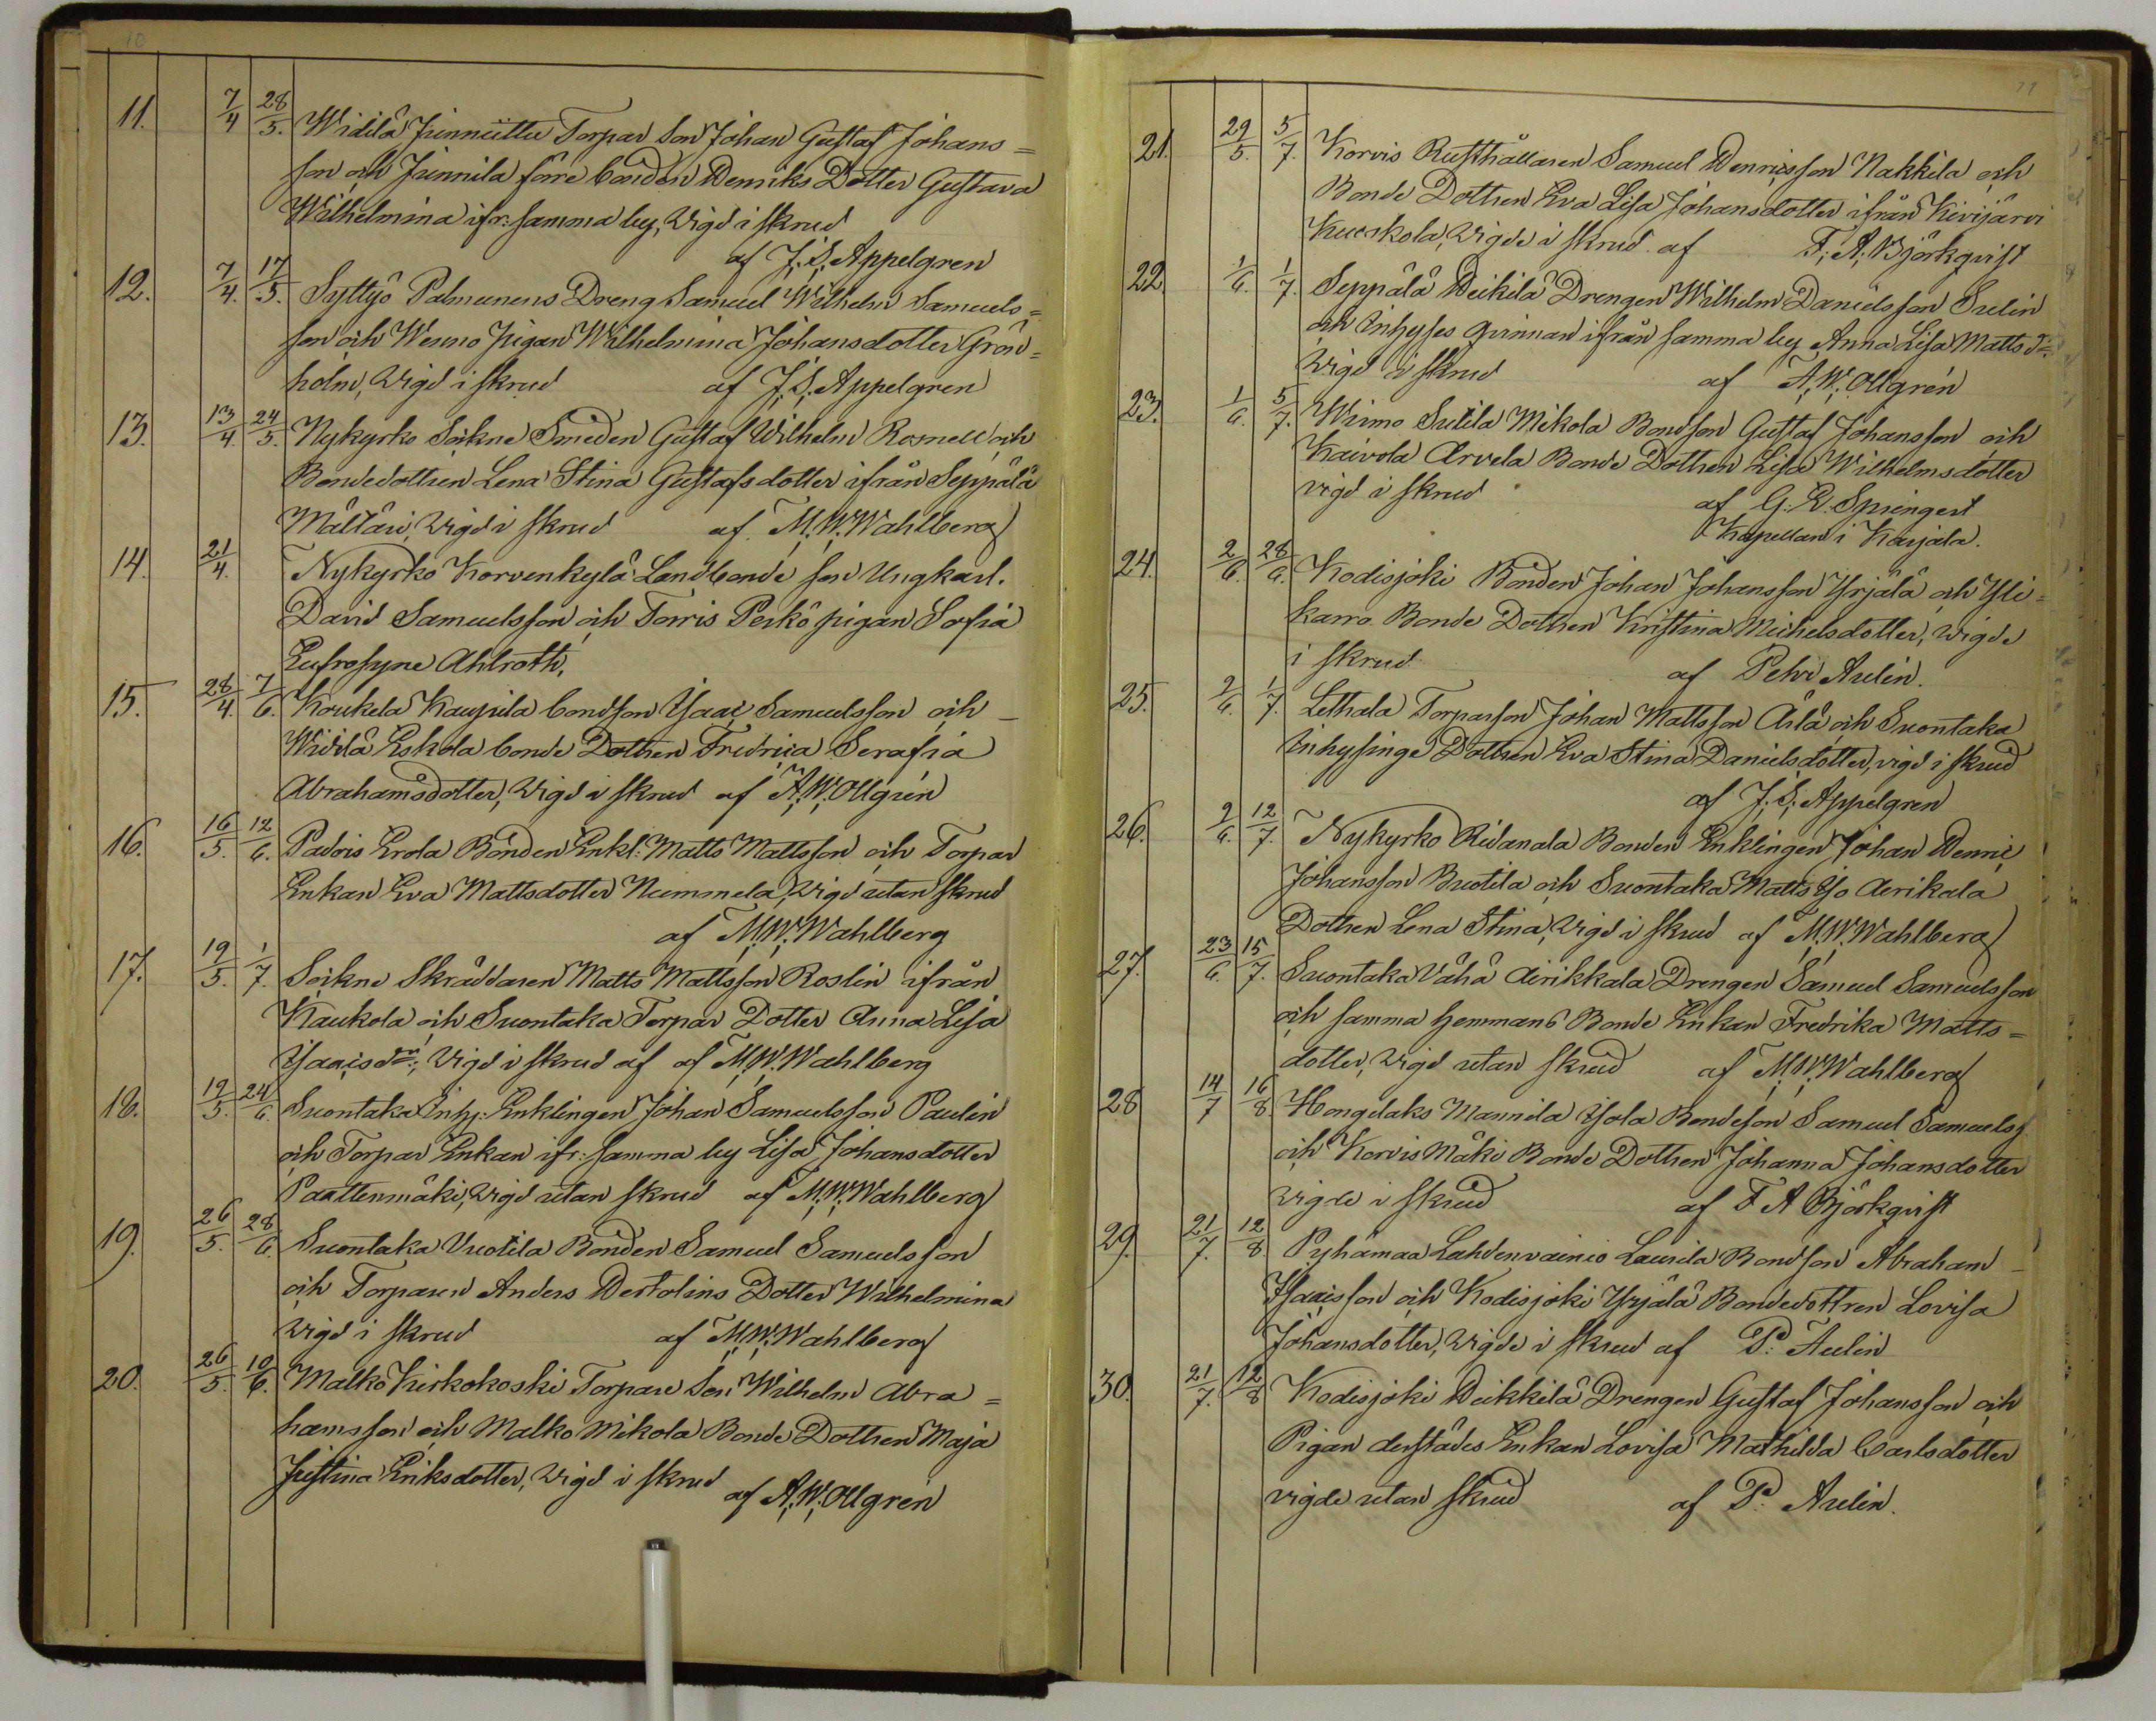 10
11. 7/4 28/5. Widilä Junnuttu Torpar Son Johan Gustaf Johans=
son och Junnila före bonden Henriks Dotter Gustava
Wilhelmina ifr: samma by, Vigd i skrud
af J. S. Appelgren
12. 7/4. 17/5. Syttyö Palmunens Dreng Samuel Wilhelm Samuels=
son och Wermo pigan Wilhelmina Johansdotter Grön=
holm, Vigd i skrud af J. S. Appelgren
13. 13/4. 24/5. Nykyrko Sockne Smeden Gustaf Wilhelm Rosnell och
Bondedottren Lena Stina Gustafsdotter ifrån Seppälä
Mältäri, Vigd i skrud af M. W. Wahlberg
14. 21/4. Nykyrko Korvenkylä Landbonde son Ungkarl.
David Samuelsson och Torris Perkö pigan Sofia
Eufrosyne Ahlroth.
15. 28/4. 7/6. Koukela Kaupila bondson Isaac Samuelsson och
Widilä Eskola bonde Dottren Fredrica Serafia
Abrahamsdotter, Vigd i skrud af A. W. Ollgrén
16. 16/5. 12/6. Padois Erola Bonden Enkl: Matts Mattsson och Torpar
Enkan Eva Mattsdotter Nummela, Vigd utan skrud
af M. W. Wahlberg
17. 19/5. 1/7. Sockne Skräddaren Matts Mattsson Roslin ifrån
Kaukola och Suontaka Torpar Dotter Anna Lisa
Isaacs dr:, Vigd i skrud af af M. W. Wahlberg
18. 19/5. 24/6. Suontaka Inhy: Enklingen Johan Samuelsson Paulin
och Torpar Enkan ifr: samma by Lisa Johansdotter
Paattenmäki, Vigd utan skrud af M. W. Wahlberg
19. 26/5. 28/6. Suontaka Uuotila Bonden Samuel Samuelsson
och Torparen Anders Westolins Dotter Wilhelmina
Vigd i skrud af M. W. Wahlberg
20. 26/5. 10/6. Malko Kirkokoski Torpare Son Wilhelm Abra=
hamsson och Malko Mikola Bonde Dottren Maja
Justina Eriksdotter, Vigd i skrud
af A. W. Ollgrén
11
21. 29/5. 5/7. Korvis Rusthållaren Samuel Henricsson Nakkila och
Bonde Dottren Eva Lisa Johansdotter ifrån Kivijärvi
Kuuskola, Vigde i skrud af F. A. Björkqvist
22. 1/6. 1/7. Seppälä Heikilä Drengen Wilhelm Danielsson Sulin
och Inhyses qvinnan ifrån samma by Anna Lisa Matts dr:
Vigd i skrud af A. W. Ollgrén
23. 1/6. 5/7. Wirmo Sutila Mikola Bondson Gustaf Johansson och
Kaivola Arvela Bonde Dottren Lisa Wilhelmsdotter
vigd i skrud af G. E. Springert
Kapellan i Karjala.
24. 2/6. 28/6. Kodisjoki Bonden Johan Johansson Yrjälä och Yli=
karro Bonde Dottren Kristina Michelsdotter, Vigde
i skrud af Pehr Aulin.
25. 2/6. 1/7. Lethala Torparson Johan Mattsson Ailä och Suontaka
Inhysinge Dottren Eva Stina Danielsdotter, vigd i skrud
af J. S. Appelgren
26. 9/6. 12/7. Nykyrko Ridanala Bonden Enklingen Johan Henric
Johansson Buotila och Suontaka Matts Iso Aerikala
Dottren Lena Stina, Vigd i skrud af M. W. Wahlberg
27. 23/6. 15/7. Suontaka Vähä Airikkala Drengen Samuel Samuelsson
och samma hemmans Bonde Enkan Fredrika Matts=
dotter, Vigd utan skrud af M. W. Wahlberg
28 14/7 16/8. Hongelaks Mannila Isola Bondeson Samuel Samuelss
och Korvis Mäki Bonde Dottren Johanna Johansdotter
Vigde i skrud af F A Björkqvist
29. 21/7. 12/8. Pyhämaa Lahdenvainio Laurila Bondson Abraham
Isaacsson och Kodisjoki Yrjälä Bondedottren Lovisa
Johansdotter, Vigde i skrud af P. Aulin
30. 21/7. 12/8 Kodisjoki Heikkilä Drengen Gustaf Johansson och
Pigan derstädes Enkan Lovisa Mathilda Carlsdotter
vigde utan skrud af P. Aulin.